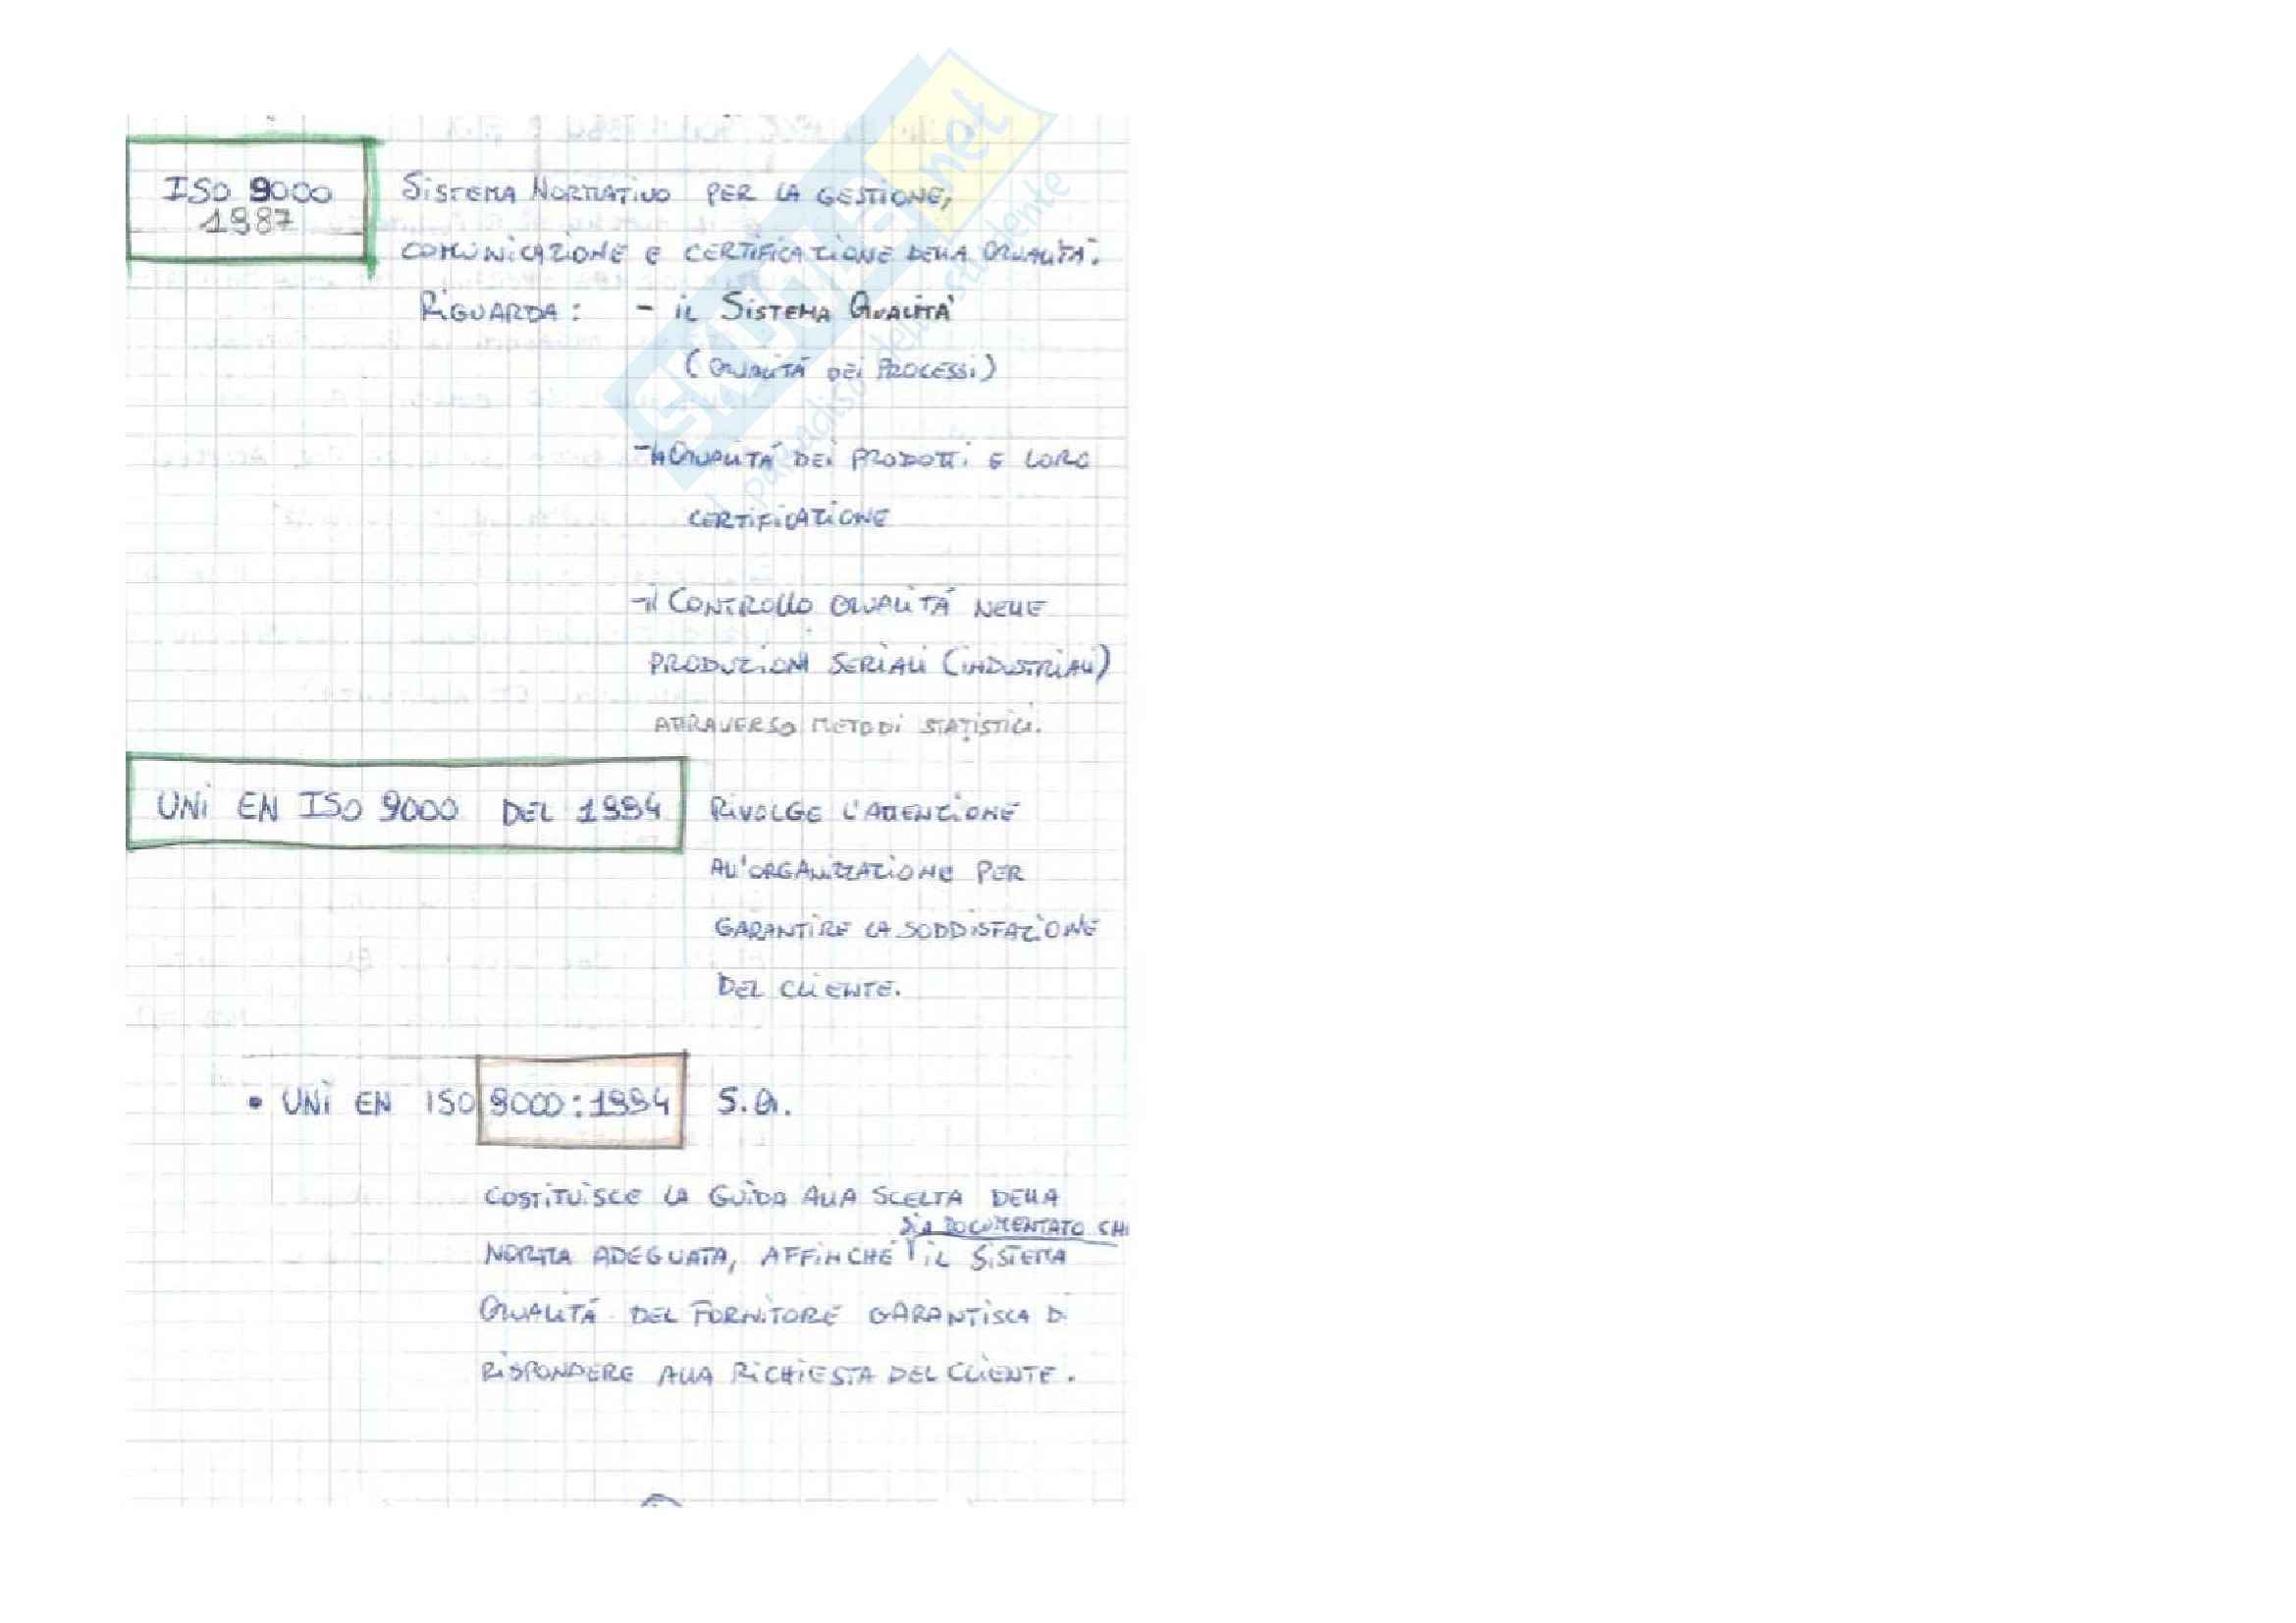 ISO 9000
1987
SISTEMA NORMATIVO PER LA GESTIONE,
COMUNICAZIONE E CERTIFICAZIONE DELLA QUALITÀ.
RIGUARDA: - IL SISTEMA QUALITÀ
(QUALITÀ DEI PROCESSI)
- LA QUALITÀ DEI PRODOTTI E LORO
CERTIFICAZIONE
- il CONTROLLO QUALITÀ NELLE
PRODUZIONI SERIALI (INDUSTRIALI)
ATTRAVERSO METODI STATISTICI.
UNI EN ISO 9000 DEL 1994
RIVOLGE L'ATTENZIONE
ALL'ORGANIZZAZIONE PER
GARANTIRE LA SODDISFAZIONE
DEL CLIENTE.
• UNI EN ISO 9000:1994 S.Q.
COSTITUISCE LA GUIDA ALLA SCELTA DELLA
SIA DOCUMENTATO CH
NORMA ADEGUATA, AFFINCHÉ IL SISTEMA
QUALITÀ DEL FORNITORE GARANTISCA DI
RISPONDERE ALLA RICHIESTA DEL CLIENTE.
SKUOLA.net
il paradiso dello studente